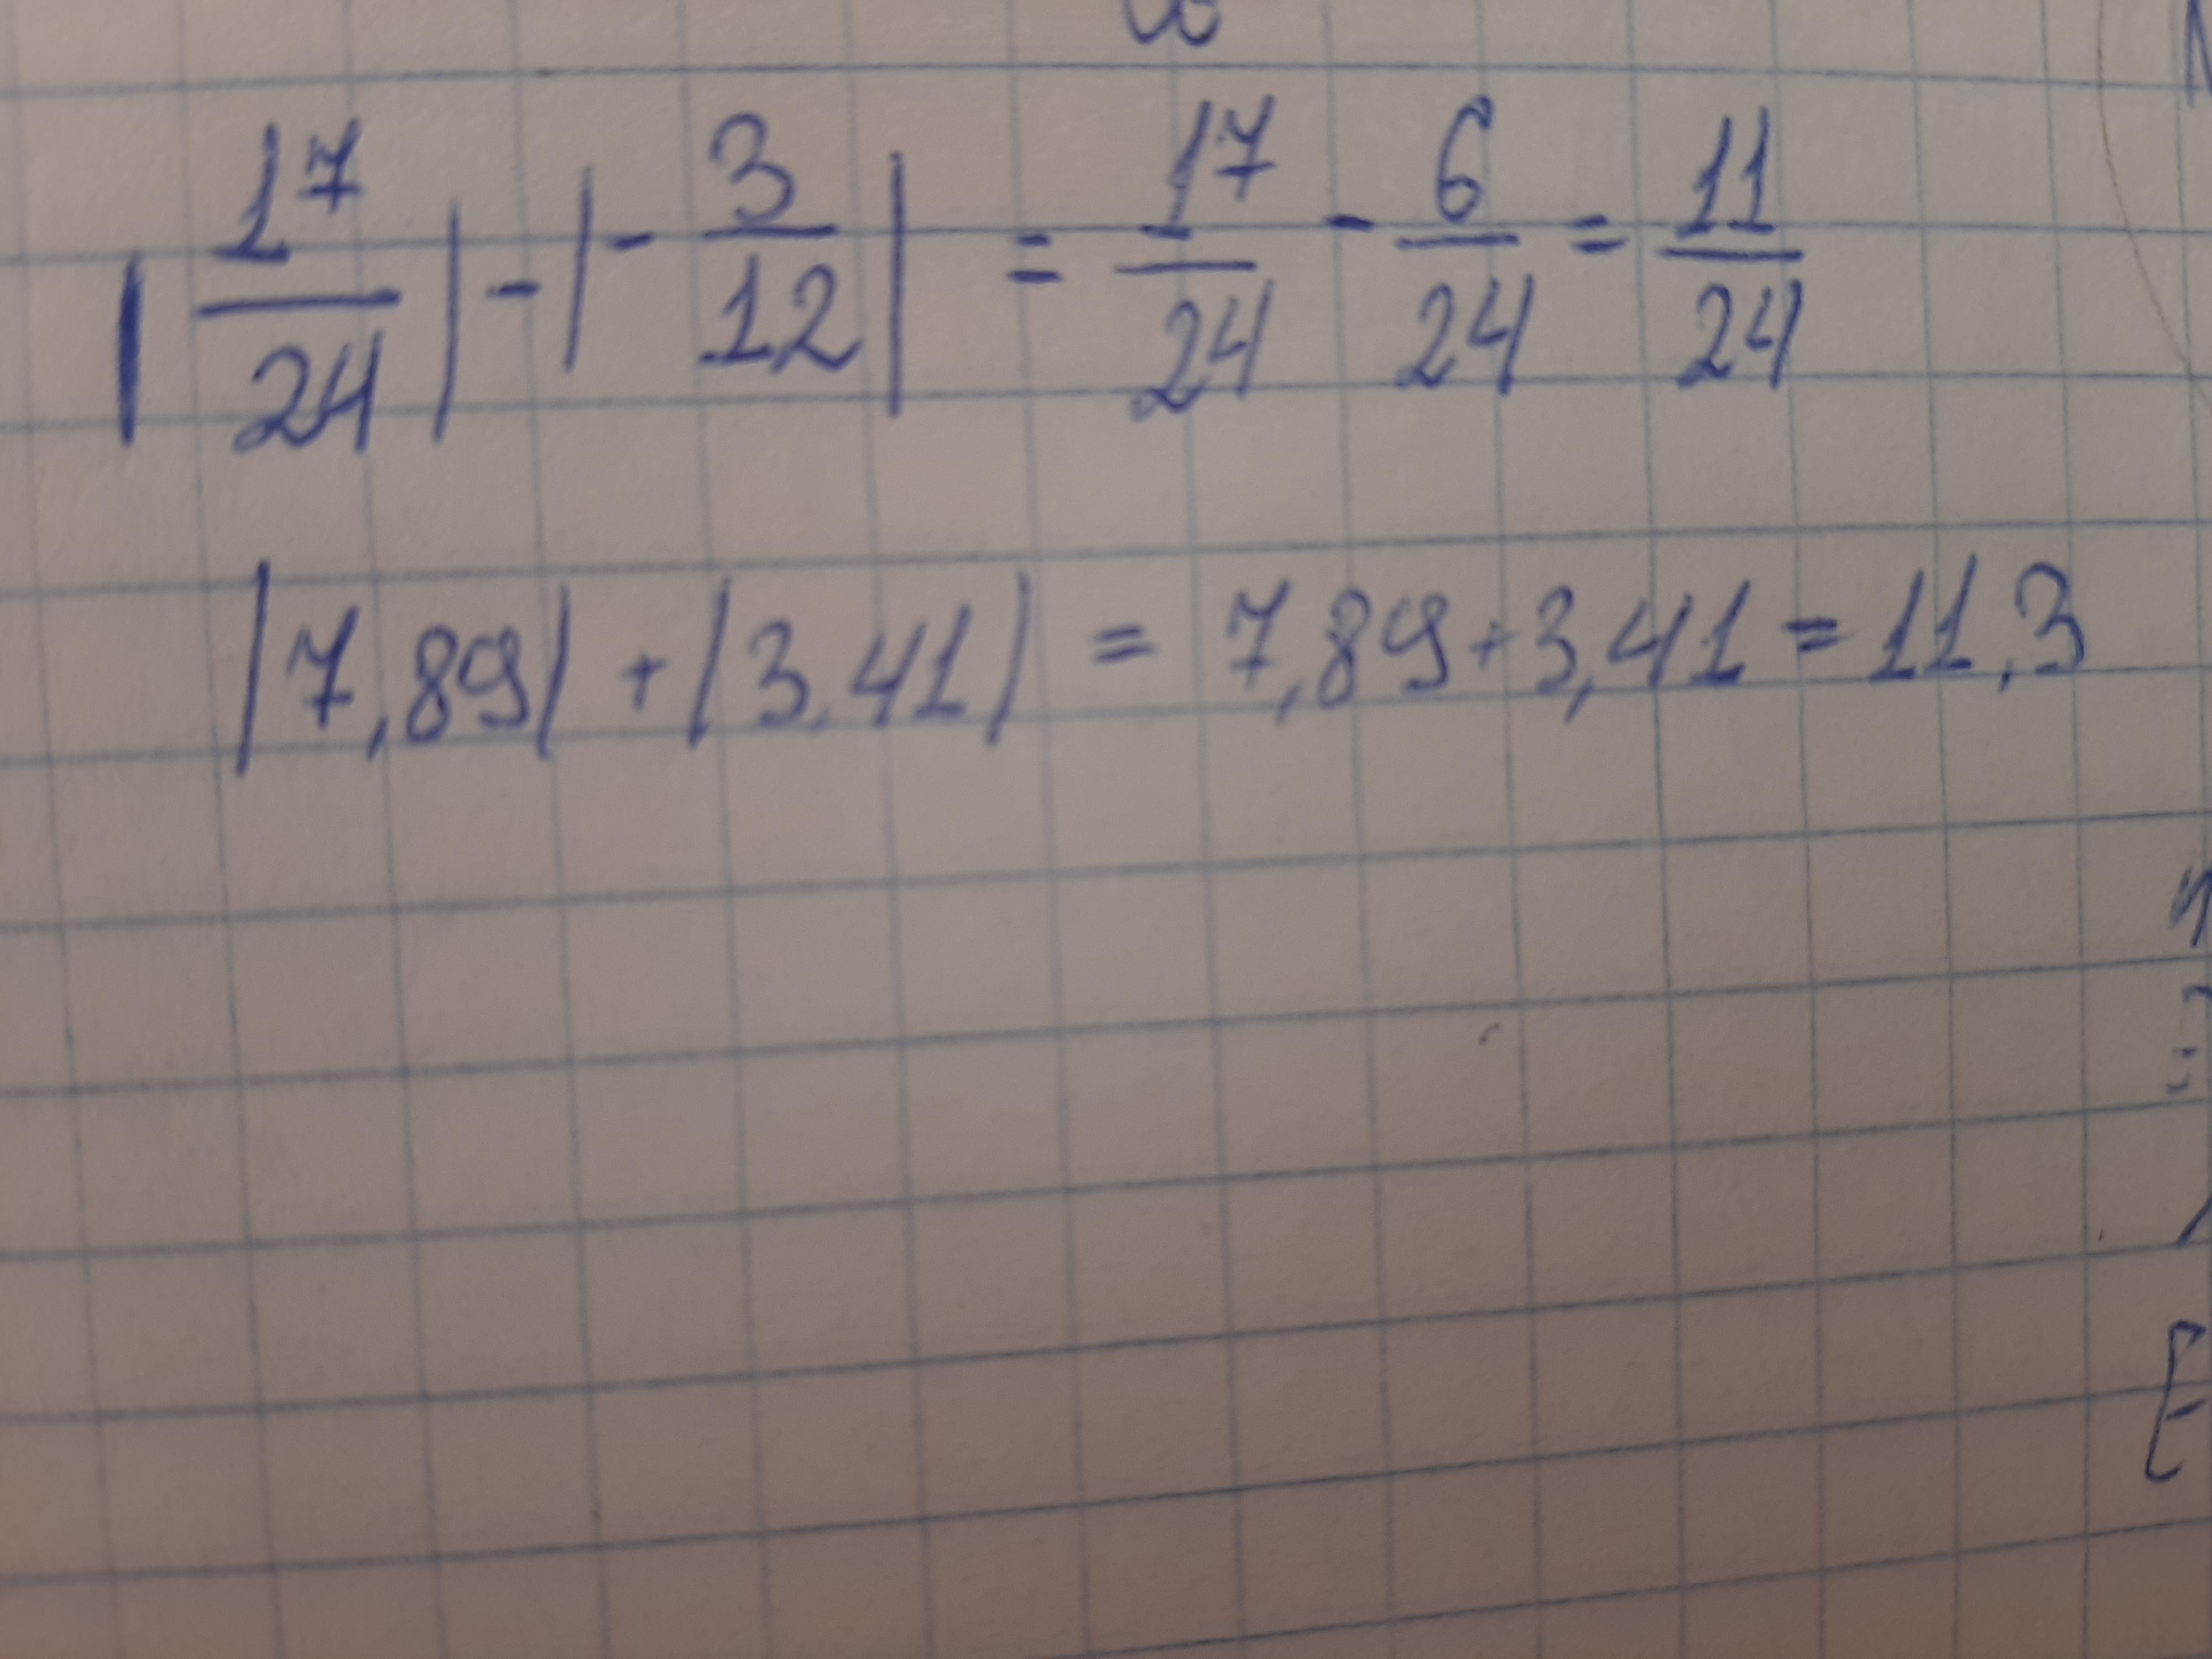 |17/24| - |- 3/12| = 17/24 - 6/24 = 11/24
|7,89| + |3,41| = 7,89 + 3,41 = 11,3